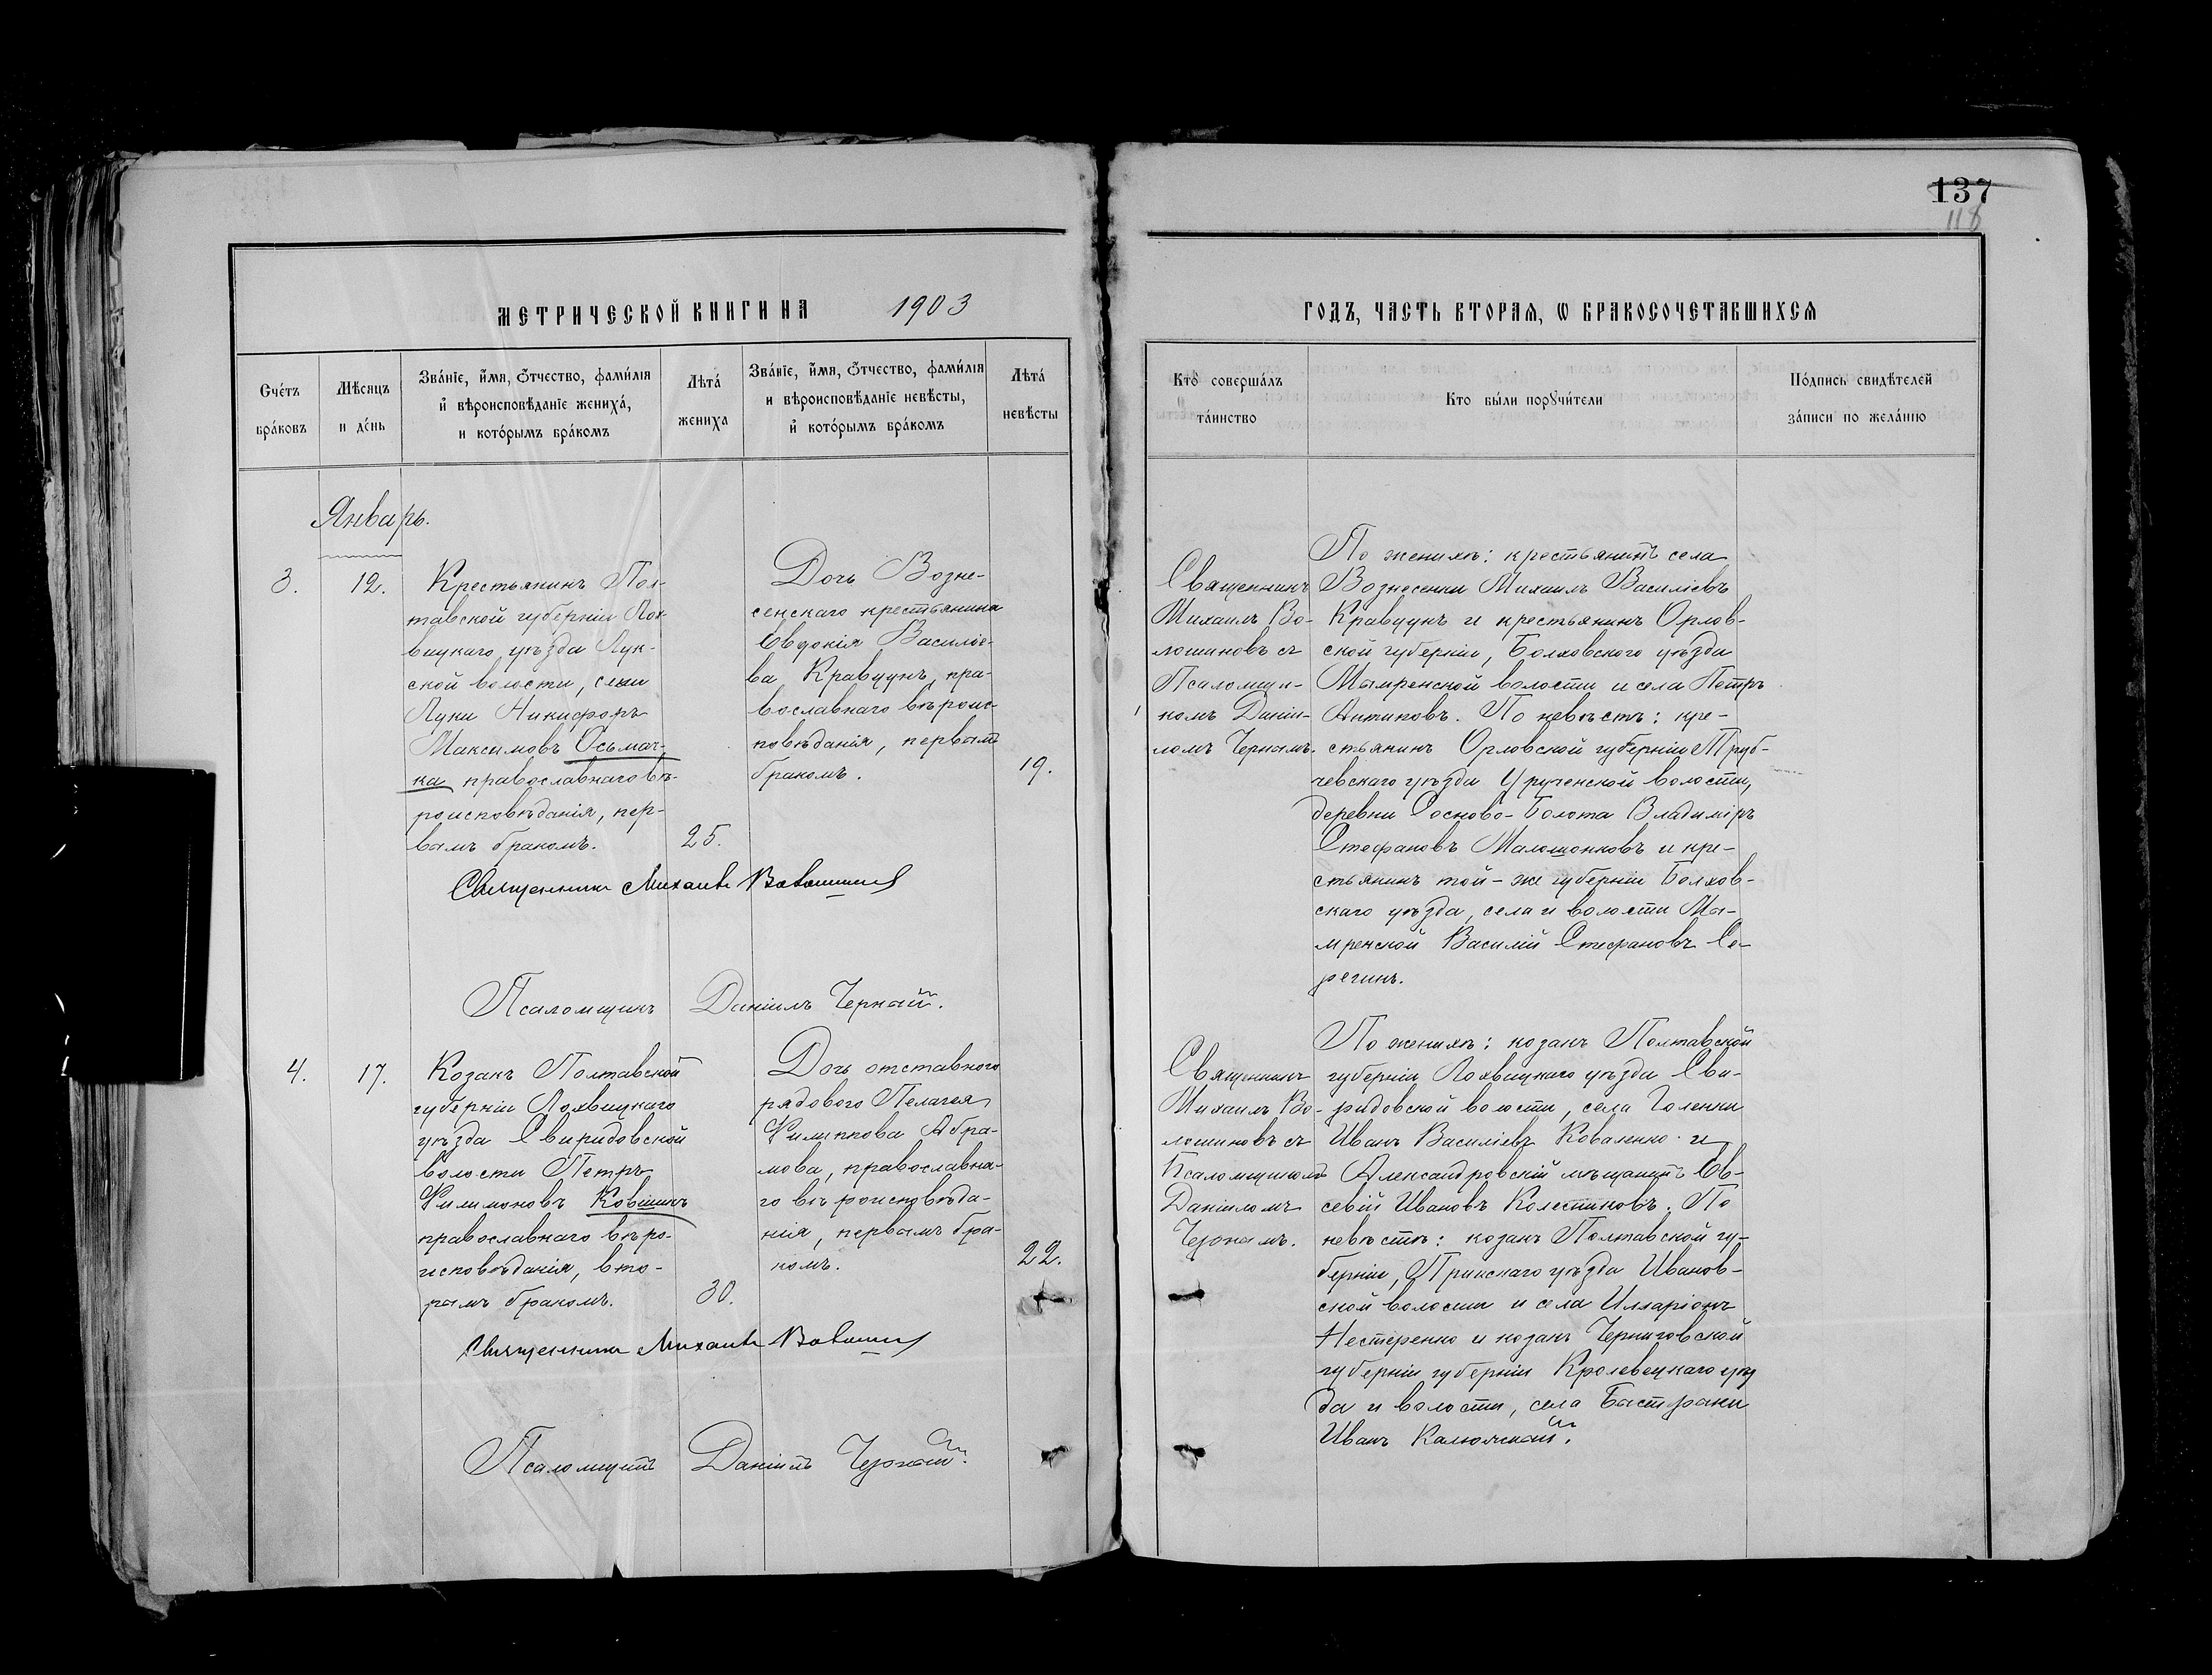 137
118
МЕТРИЧЕСКОЙ КНИГИ НА 1903
ГОДЪ, ЧАСТЬ ВТОРАЯ, Ѡ БРАКОСОЧЕТАВШИХСЯ
Счетъ браковъ
Мѣсяцъ и день
Званіе, имя, отчество, фамилія
и вѣроисповѣданіе жениха,
и которымъ бракомъ
Лѣта жениха
Званіе, имя, отчество, фамилія
и вѣроисповѣданіе невѣсты,
и которымъ бракомъ
Лѣта невѣсты
Кто совершалъ
таинство
Кто были поручители
Подпись свидѣтелей
записи по желанію
Январь.
3.
12.
Крестьянинъ Пол-
тавской губерніи Лох-
вицкаго уѣзда Лук-
ской волости, села
Луки Никифоръ
Максимовъ Осьмач-
ка православнаго вѣ-
роисповѣданія, пер-
вымъ бракомъ.
25.
Дочь Возне-
сенскаго крестьянина
Евдокія Василіе-
ва Кравцунъ, пра-
вославнаго вѣроис-
повѣданія, первымъ
бракомъ.
19.
Священникъ
Михаилъ Во-
лошиновъ съ
Псаломщи-
комъ Даніи-
ломъ Чернымъ.
По женихѣ: крестьянинъ села
Вознесенки Михаилъ Василіевъ
Кравцунъ и крестьянинъ Орлов-
ской губерніи, Болховского уѣзда
Мымренской волости и села Петръ
Антиповъ. По невѣстѣ: кре-
стьянинъ Орловской губерніи Труб-
чевскаго уѣзда Уручевской волости,
деревни Сосново-Болота Владиміръ
Стефановъ Малошонковъ и кре-
стьянинъ той-же губерніи Болхов-
скаго уѣзда, села и волости Мы-
мренской Василій Стефановъ Се-
регинъ.
Священникъ Михаилъ Волошинов
Псаломщикъ Даніилъ Черный.
4.
17.
Козакъ Полтавской
губерніи Лохвицкаго
уѣзда Свиридовской
волости Петръ
Филимоновъ Ковшикъ
православнаго вѣро-
исповѣданія, вто-
рымъ бракомъ.
30.
Дочь отставного
рядового Пелагея
Филиппова Абра-
мова, православна-
го вѣроисповѣда-
нія, первымъ бра-
комъ.
22.
Священникъ
Михаилъ Во-
лошиновъ съ
Псаломщикомъ
Даніиломъ
Чернымъ.
По женихѣ: козакъ Полтавской
губерніи Лохвицкаго уѣзда Сви-
ридовской волости, села Голенки
Иванъ Василіевъ Коваленко и
Александровскій мѣщанинъ Ев-
севій Ивановъ Колесниковъ. По
невѣстѣ: козакъ Полтавской гу-
берніи, Прилскаго уѣзда Иванов-
ской волости и села Илларіонъ
Нестеренко и козакъ Черниговской
губерніи губерніи Кролевецкаго уѣз
да и волости, села Быстрики
Иванъ
Священникъ Михаилъ Волошинов
Псаломщикъ Даніилъ Черный.